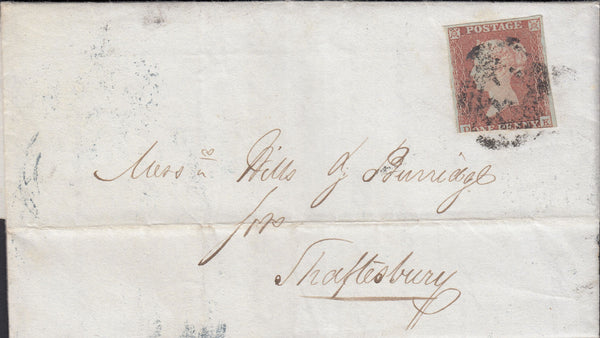 POSTAGE
ONE PENNY
Messrs Wills & Burridge
Shaftesbury